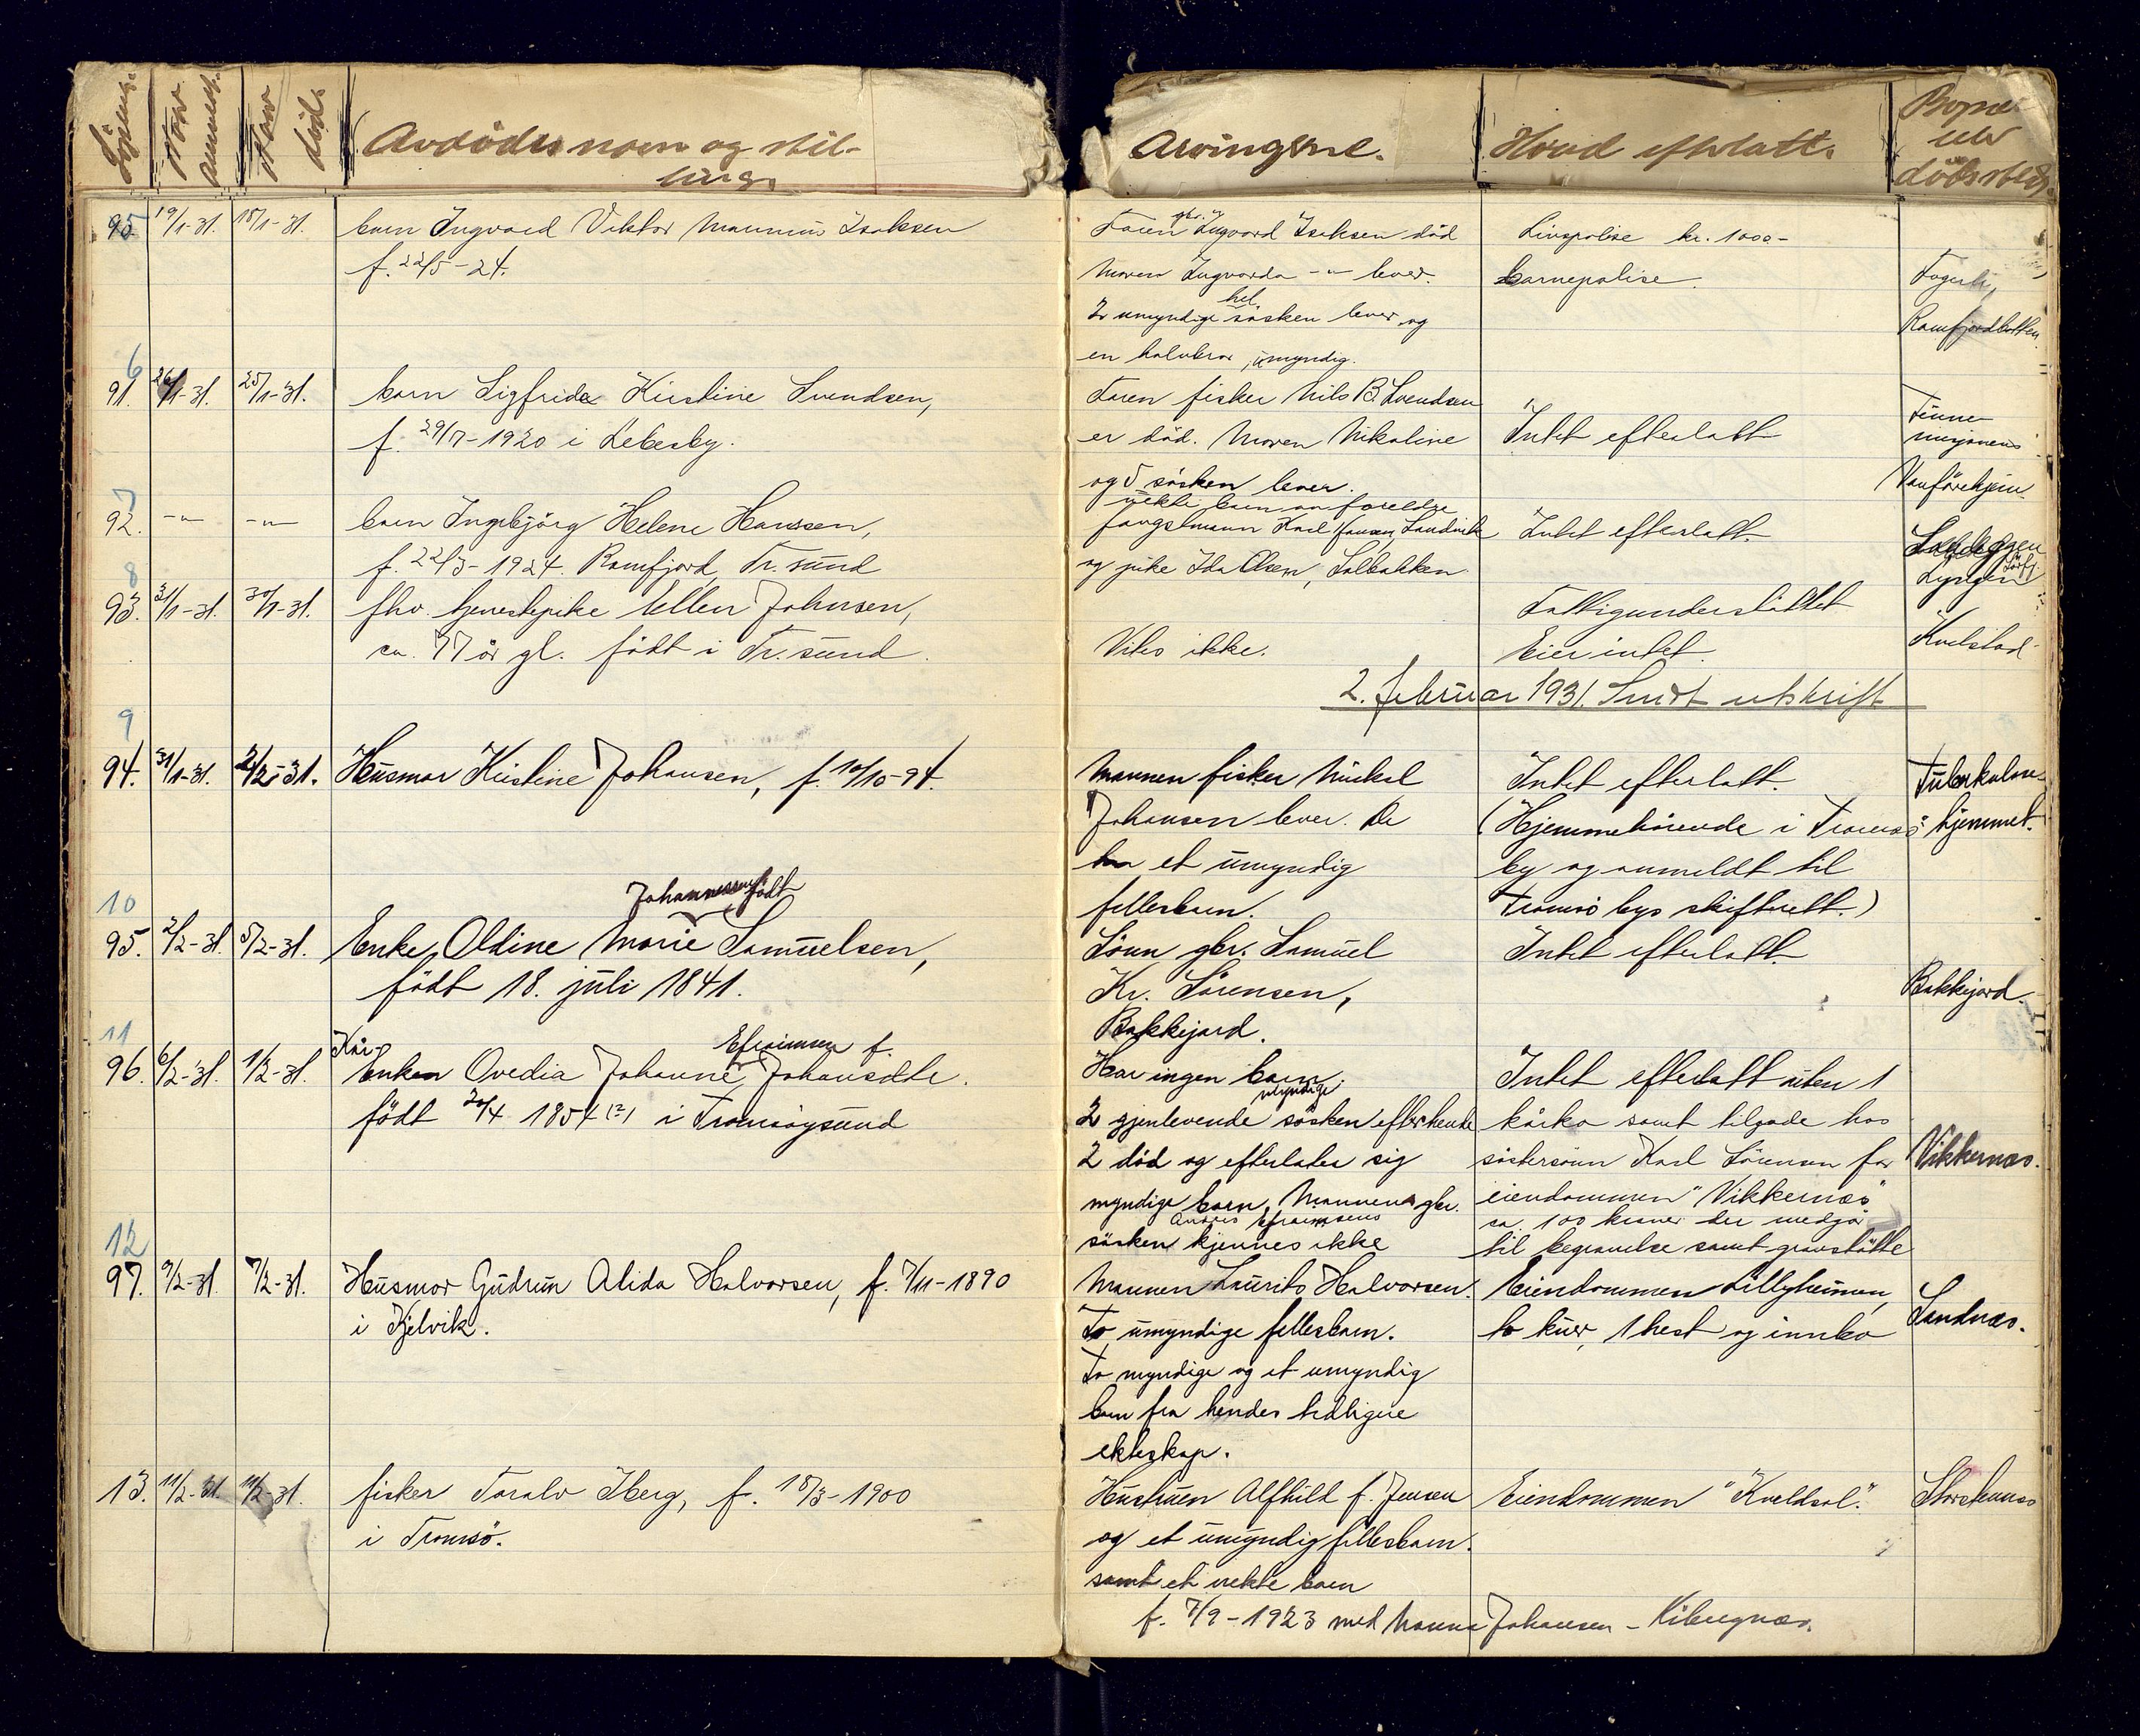 Löpenr.
Naar anmeldt.
Naar död.
Avdödes navn og stilling.
Arvingene.
Hvad efterlatt.
Bopæl
eller
dödssted.
95. 19/1-31. 15/1-31. barn Ingvard Viktor Marinius Isaksen
f. 22/5-24.
Faren gbr. Ingvard Isaksen död
Moren Ingvarda -"- lever.
2 umyndige hel sösken lever og
en halvbror, umyndig.
Livspolise kr. 1000-
barnepolise.
Fagerli,
Ramfjordbotten.
6
91. 26/1-31. 25/1-31. barn Sigfrida Kirstine Svendsen,
f. 29/7-1920 i Lebesby.
Faren fisker Nils B. Svendsen
er död. Moren Nikoline
og 5 sösken lever.
Intet efterlatt
Finne
misjonens
Vanförehjem.
7
92. -"- -"- barn Ingebjörg Helene Hanssen,
f. 22/3-1924. Ramfjord, Tr. sund
uekte barn av foreldre
fangstmann Karl Hansen, Sandvik
og pike Ida Olsen, Solbakken
Intet efterlatt.
Lyngen
8
93. 31/1-31. 30/1-31. fhv. tjenestepike Ellen Johnsen,
ca. 77 år gl. födt i Tr. sund.
Vites ikke.
Fattigunderstöttet
Eier intet.
Kvelstad
2. februar 1931. Sendt utskrift
9
94. 31/1-31. 2/2-31. Husmor Kristine Johansen, f. 10/10-94.
Mannen fisker Mikal
Johansen lever. De
har et umyndig
fellesbarn.
Intet efterlatt.
(Hjemmehörende i Tromsö
by og anmeldt til
Tromsö bys skifterett.)
Tuberkulose-
hjemmet.
10
Johannessen födt
95. 2/2-31. 5/2-31. Enke Oldine Marie Samuelsen,
födt 18. juli 1841.
Sönn gbr. Samuel
Kr. Sörensen,
Bakkejord.
Intet efterlatt.
Bakkejord.
11
Kår- Efraimsen f.
96. 6/2-31. 1/2-31. Enken Ovedia Johanne Johansdtr.
födt 20/4 1854 (?) i Tromsöysund
Har ingen barn.
myndige
2 gjenlevende sösken efter hende
2 död og efterlater sig
myndige barn, Mannens gbr.
Andreas Efraimsens
sösken kjennes ikke
Intet efterlatt uten 1
kårko samt tilgode hos
söstersönn Karl Sörensen for
eiendommen "Vikkernes"
ca. 100 kroner der medgår
til begravelse samt gravstötte
Vikkernes.
12
97. 9/2-31. 7/2-31. Husmor Gudrun Alida Halvorsen, f. 7/11-1890
i Kjelvik.
Mannen Laurits Halvorsen.
To umyndige fellesbarn.
To myndige og et umyndig
barn fra hendes tidligere
ekteskap.
Eiendommen Lillyheimen,
to kuer, 1 hest og innbo
Sandnes.
13. 11/2-31. 11/2-31. fisker Toralv Iberg, f. 18/3-1900
i Tromsö.
Hustruen Alfhild f. Jensen
og et umyndig fellesbarn.
samt et uekte barn
f. 7/9-1923 med Nanna Johansen - Kibergnes.
Eiendommen "Kveldsol".
Storstennes